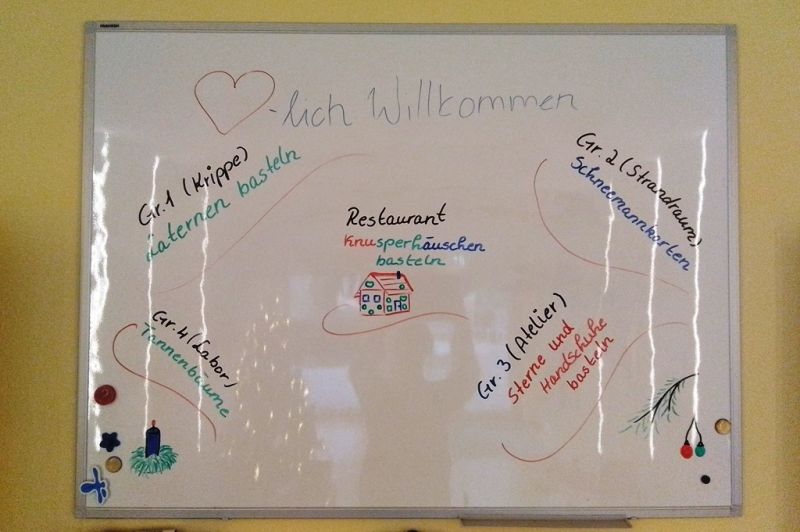 -lich Willkommen
Gr.1 (Krippe)
Laternen basteln
Gr. 2 (Strandraum)
Schneemannkarten
Restaurant
Knusperhäuschen
basteln
Gr. 4 (Labor)
Tannenbäume
Gr. 3 (Atelier)
Sterne und
Handschuhe
basteln